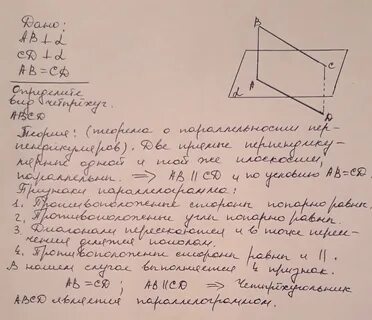 Дано:
AB ⊥ α
CD ⊥ α
AB = CD
Определите
вид четырёхуг.
ABCD
B
C
A
α
D
Теория: (теорема о параллельности пер-
пендикуляров). Две прямые перпендику-
лярные одной и той же плоскости,
параллельны. ⟹ AB ∥ CD и по условию AB = CD.
Признаки параллелограмма:
1. Противоположные стороны попарно равны.
2. Противоположные углы попарно равны.
3. Диагонали пересекаются и в точке пересе-
чения делятся пополам.
4. Противоположные стороны равны и ||.
В нашем случае выполняется 4 признак.
AB = CD; AB ∥ CD ⟹ Четырёхугольник
ABCD является параллелограммом.